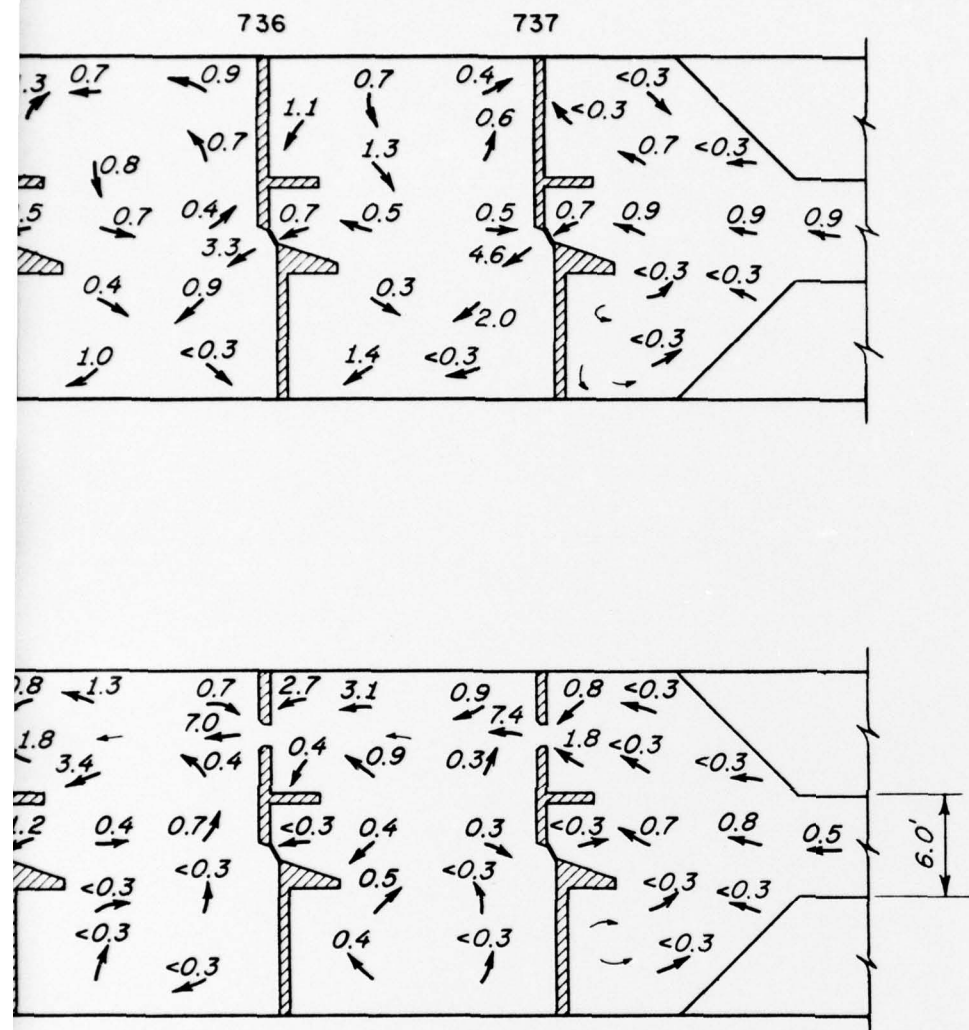 736 737
.3 0.7 0.9 0.7 0.4 <0.3
1.1 0.6 <0.3
0.8 0.7 1.3 0.7 <0.3
.5 0.7 0.4 0.7 0.5 0.5 0.7 0.9 0.9 0.9
3.3 4.6
0.4 0.9 0.3 2.0 <0.3 <0.3
1.0 <0.3 1.4 <0.3 <0.3
0.8 1.3 0.7 2.7 3.1 0.9 0.8 <0.3
1.8 7.0 7.4 1.8 <0.3
3.4 0.4 0.4 0.9 0.3 <0.3
1.2 0.4 0.7 <0.3 0.4 0.3 <0.3 0.7 0.8 0.5
<0.3 <0.3 0.5 <0.3 <0.3 <0.3
<0.3 <0.3 0.4 <0.3 <0.3
6.0'